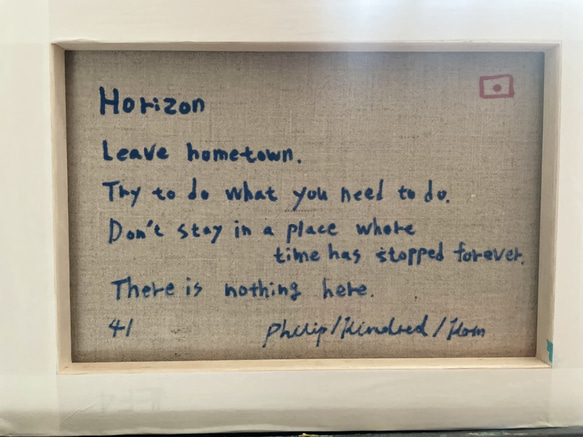 Horizon
Leave hometown.
Try to do what you need to do.
Don't stay in a place where
time has stopped forever.
There is nothing here.
41 Philip/Kindred/